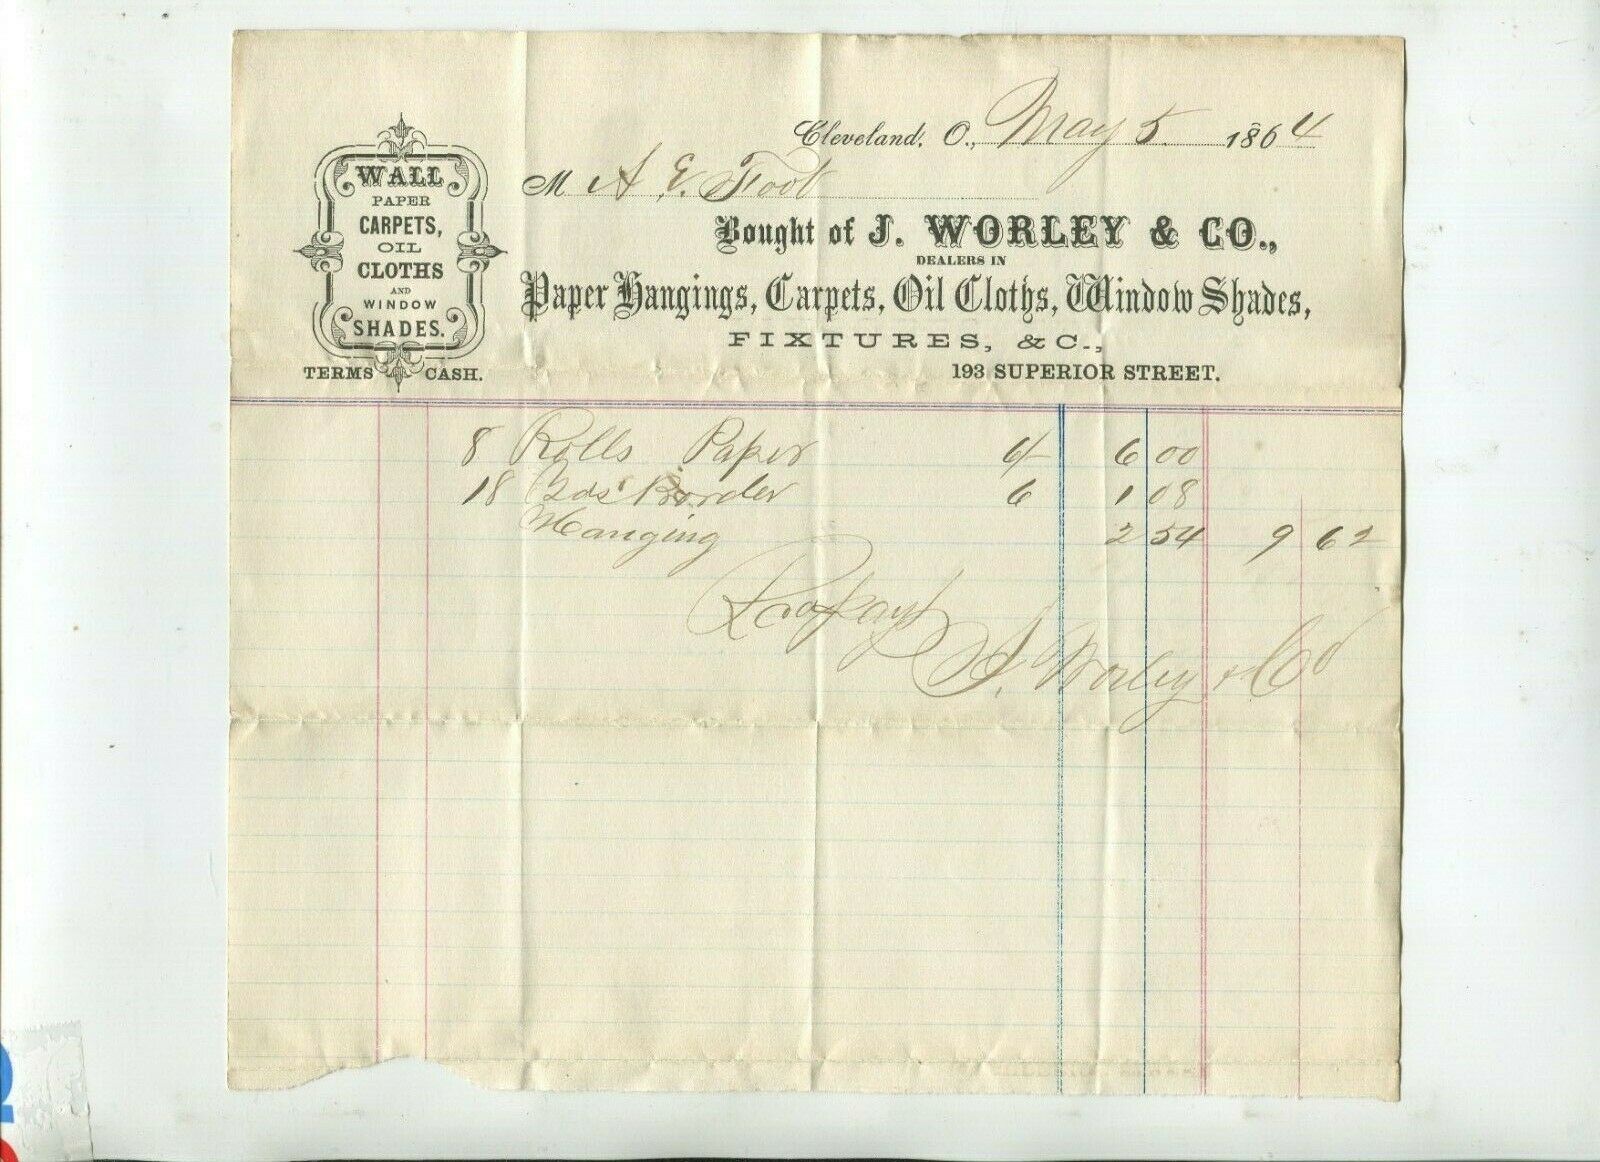 Cleveland, O., May 5 1864
M A. E. Foot
WALL
PAPER
CARPETS,
OIL
CLOTHS
AND
WINDOW
SHADES.
TERMS CASH.
Bought of J. WORLEY & CO.,
DEALERS IN
Paper Hangings, Carpets, Oil Cloths, Window Shades,
FIXTURES, & C.,
193 SUPERIOR STREET.
8 Rolls Paper 6/- 6 00
18 Yds Border 6 1 08
Hanging 2 54 9 62
J. Worley & Co